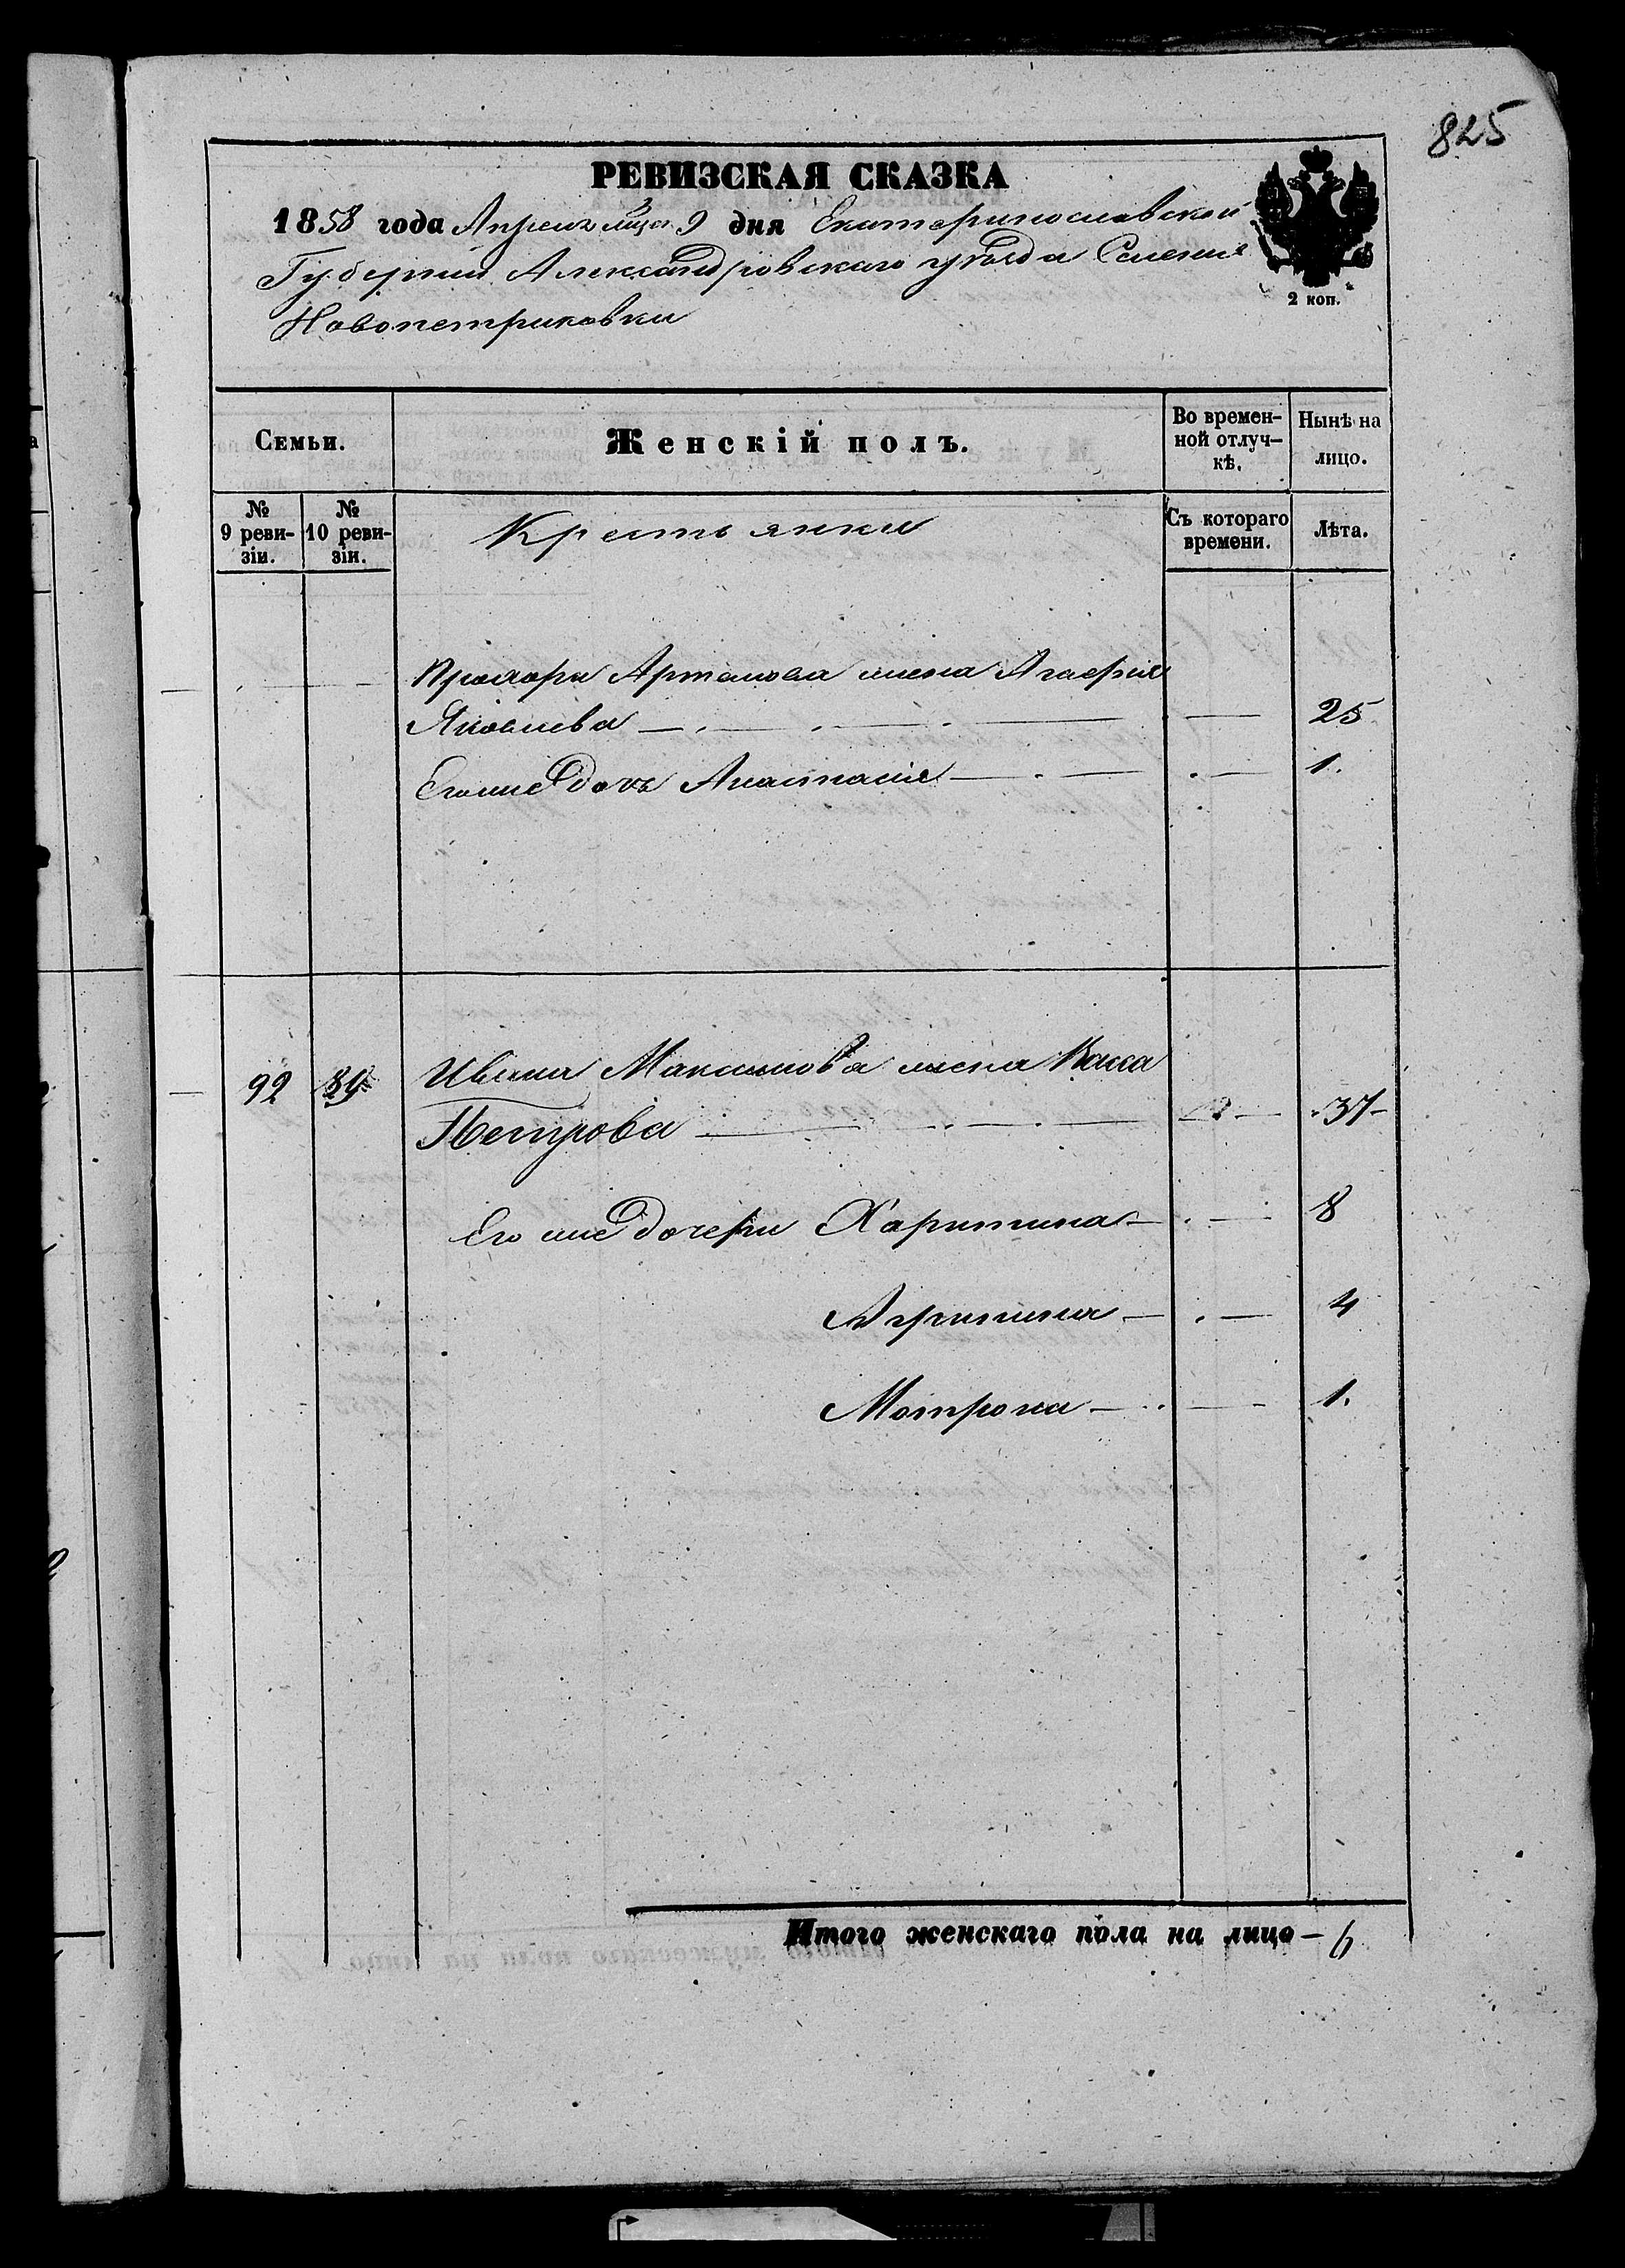 825
РЕВИЗСКАЯ СКАЗКА
1858 года Апреля мца 9 дня Екатеринославской
Губернии Александровскаго уѣзда Селения
Новопетриковки
2 коп.
Семьи.
Женскій полъ.
Во времен-
ной отлуч-
кѣ.
Нынѣ на
лицо.
№
9 реви-
зіи.
№
10 реви-
зіи.
Крестьянки
Съ котораго
времени.
Лѣта.
Прохора Артемова жена Агафия
Яковлева 25
Его же дочь Анастасія 1.
92 89 Ивана Максимова жена Васса
Петрова 37
Его же дочери Харитина 8
Агрипина 4
Мотрона 1.
Итого женскаго пола на лицо – 6